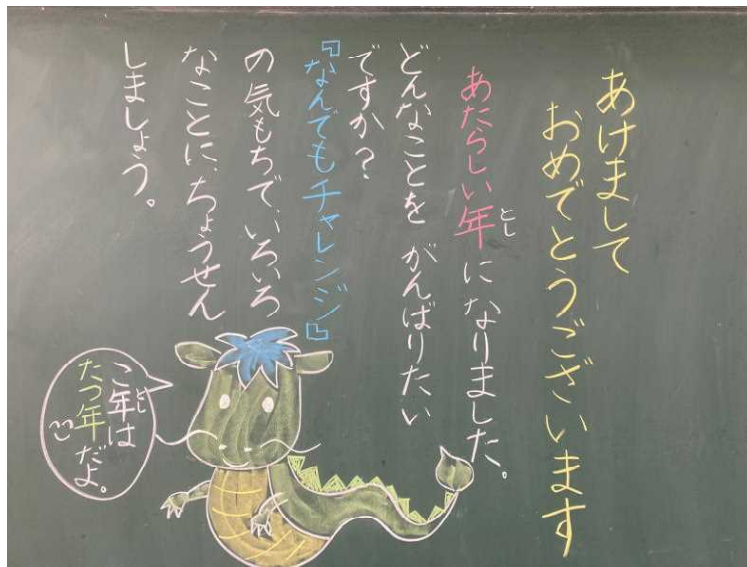 あけまして
おめでとうございます
あたらしい年になりました。
とし
どんなことを がんばりたい
ですか?
『なんでもチャレンジ』
の気もちで、いろいろ
なことに、ちょうせん
しましょう。
こ年は
とし
たつ年だよ。